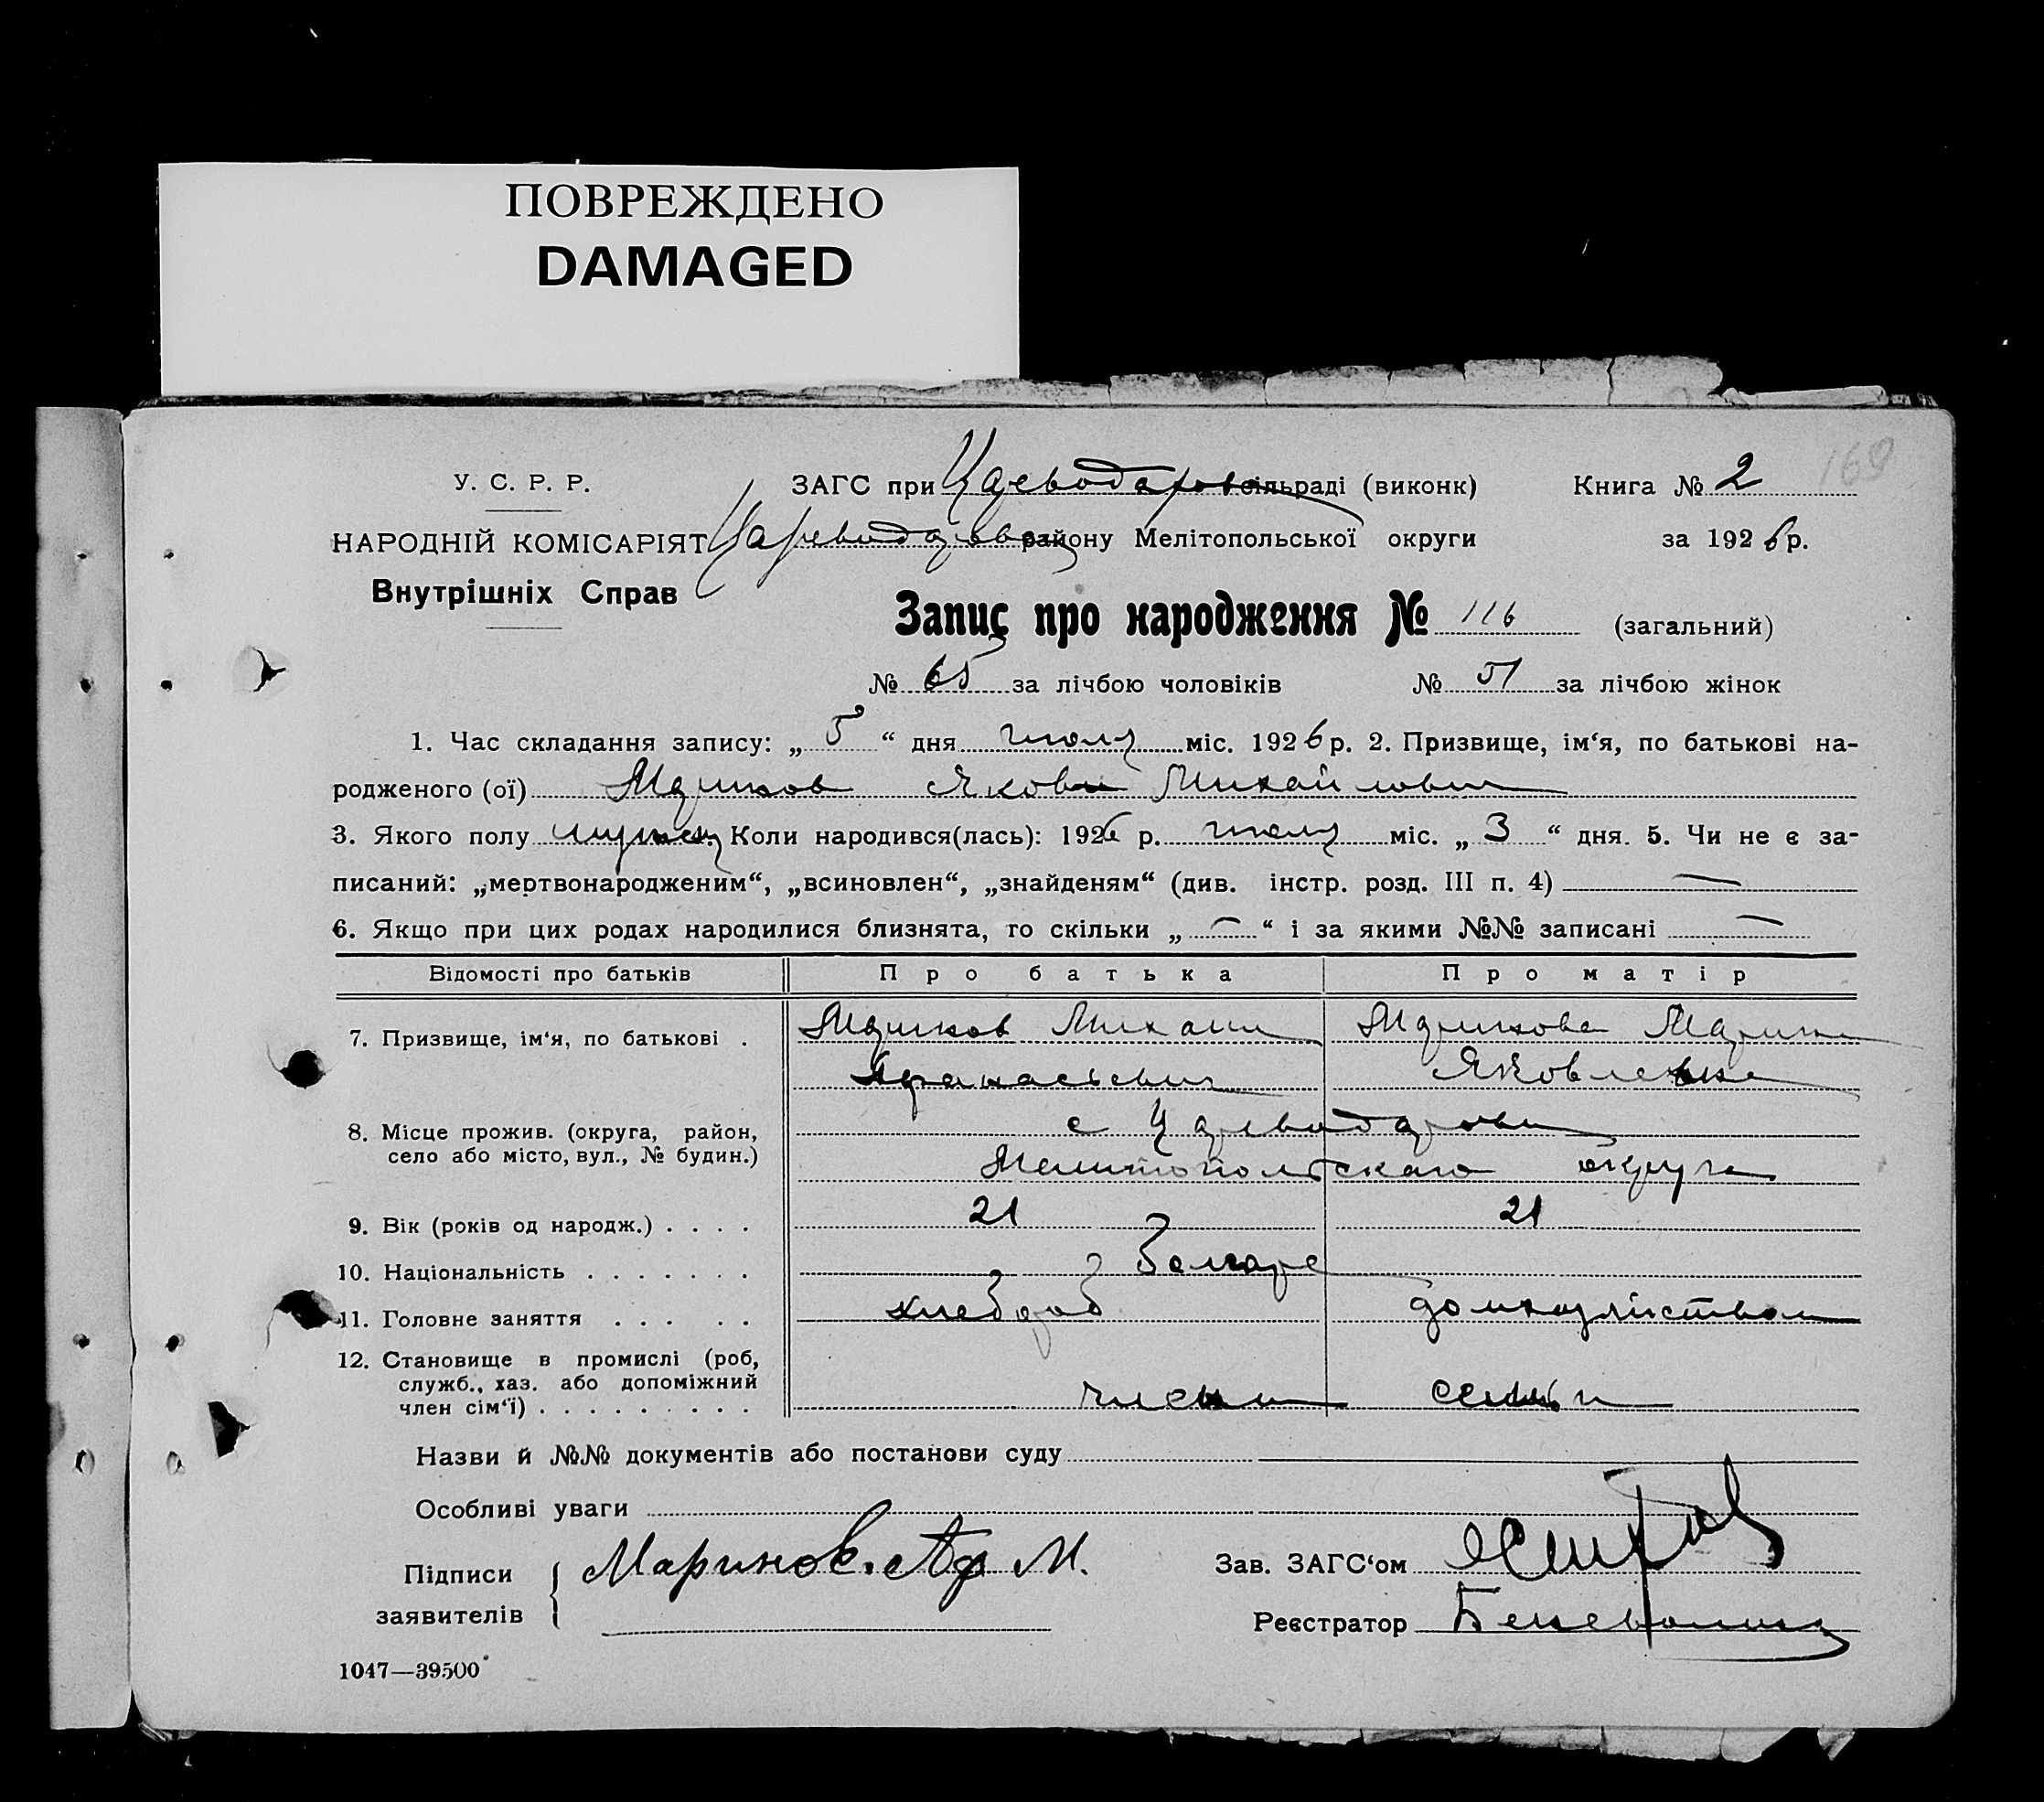 ПОВРЕЖДЕНО
DAMAGED
169
У. С. Р. Р.
ЗАГС при Цареводаровс сільраді (виконк)
Книга № 2
НАРОДНІЙ КОМІСАРІЯТ
Цареводаровск району Мелітопольської округи
за 1926 р.
Внутрішніх Справ
Запис про народження № 116 (загальний)
№ 65 за лічбою чоловіків № 51 за лічбою жінок
1. Час складання запису: „ 5 “ дня июля міс. 1926 р. 2. Призвище, ім‘я, по батькові на-
родженого (ої) Маринов Яков Михайлович
3. Якого полу мужск. Коли народився(лась): 1926 р. июля міс. „ 3 “ дня. 5. Чи не є за-
писаний: „мертвонародженим“, „всиновлен“, „знайденям“ (див. інстр. розд. III п. 4) —
6. Якщо при цих родах народилися близнята, то скільки „ — “ і за якими №№ записані —
Відомості про батьків
Про батька
Про матір
7. Призвище, ім‘я, по батькові .
Маринов Михаил
Маринова Марина
Афанасьевич
Яковлевна
8. Місце прожив. (округа, район,
село або місто, вул., № будин.)
с Цареводаровка
Мелитопольскаго округа
9. Вік (років од народж.) . . . .
21
21
10. Національність . . . . . . .
Болгаре
11. Головне заняття . . . . .
хлебороб
12. Становище в промислі (роб,
служб., хаз. або допоміжний
член сім‘ї) . . . . . . . . .
члены семьи
Назви й №№ документів або постанови суду
Особливі уваги
Підписи
заявителів
Маринов. Аф М.
Зав. ЗАГС‘ом
Реєстратор
1047—39500